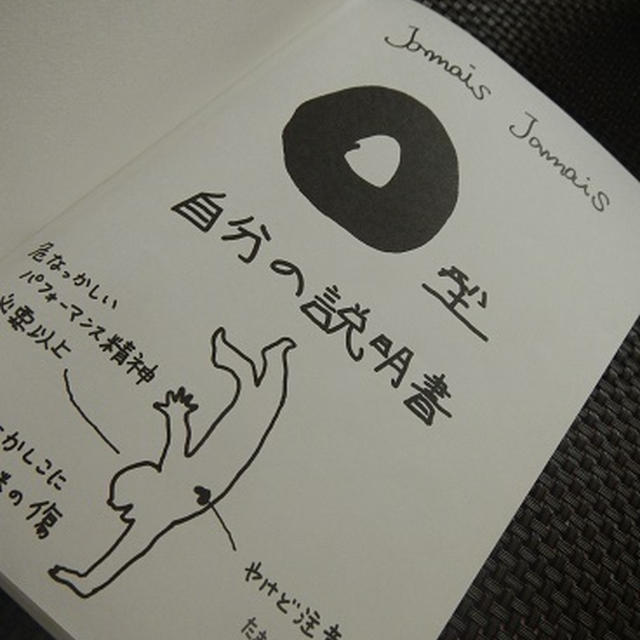 Jamais Jamais
O型
自分の説明書
危なっかしい
パフォーマンス精神
必要以上
かしこに
の傷
やけど注意